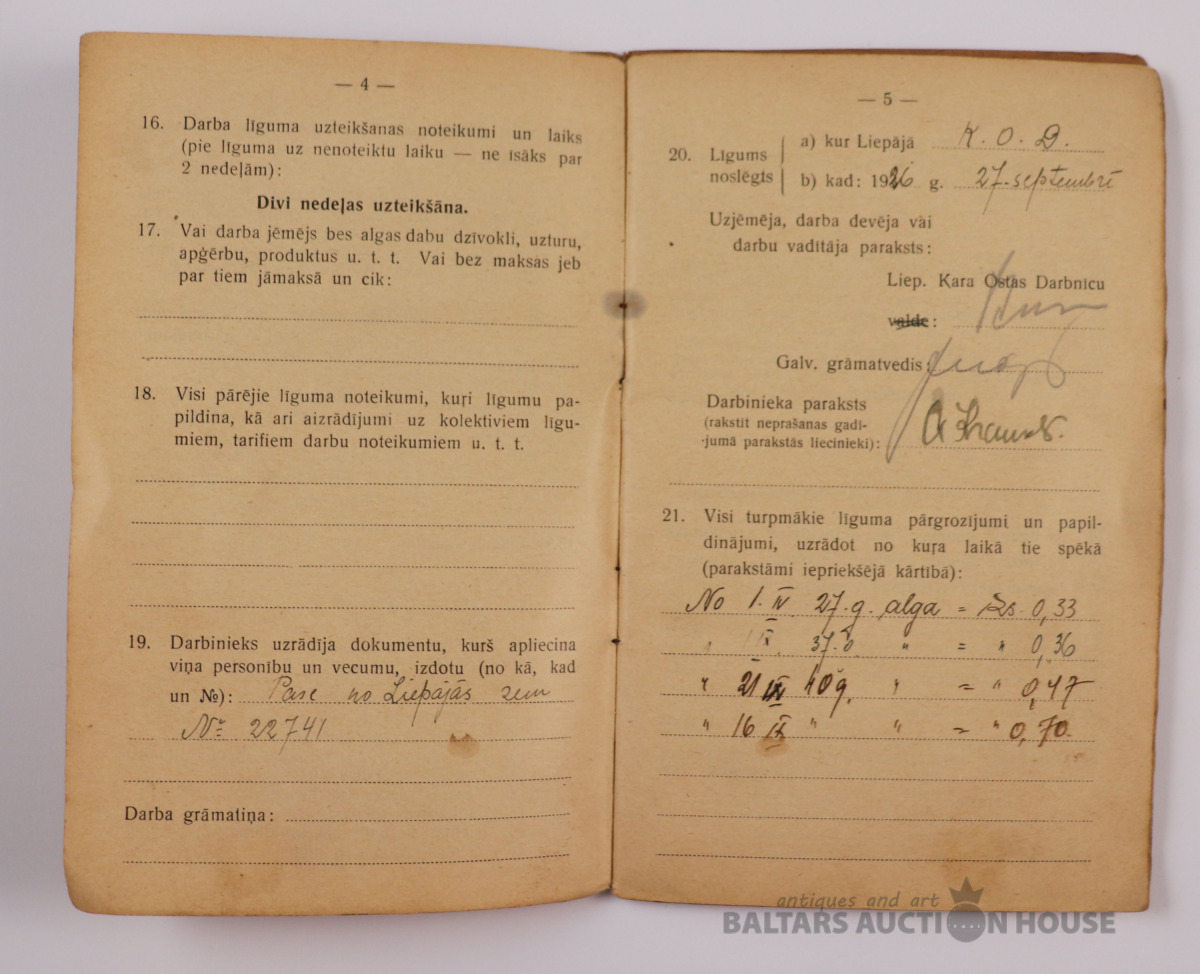 — 4 —
16. Darba līguma uzteikšanas noteikumi un laiks
(pie līguma uz nenoteiktu laiku — ne īsāks par
2 nedeļām):
Divi nedeļas uzteikšāna.
17. Vai darba jēmējs bes algas dabu dzīvokli, uzturu,
apģērbu, produktus u. t. t. Vai bez maksas jeb
par tiem jāmaksā un cik:
18. Visi pārējie līguma noteikumi, kuŗi līgumu pa-
pildina, kā ari aizrādījumi uz kolektiviem līgu-
miem, tarifiem darbu noteikumiem u. t. t.
19. Darbinieks uzrādīja dokumentu, kurš apliecina
viņa personību un vecumu, izdotu (no kā, kad
un №): Pase no Liepājās
№ 22741
Darba grāmatiņa:
— 5 —
20. Līgums noslēgts
a) kur Liepājā K. O. D.
b) kad: 1926 g. 27. septembrī
Uzjēmēja, darba devēja vai
darbu vadītāja paraksts:
Liep. Kara Ostas Darbnīcu
valde:
Galv. grāmatvedis:
Darbinieka paraksts
(rakstīt neprašanas gadī-
-jumā parakstās liecinieki):
21. Visi turpmākie līguma pārgrozījumi un papil-
dinājumi, uzrādot no kuŗa laikā tie spēkā
(parakstāmi iepriekšējā kārtībā):
No 1. IV 27. g. alga = Ls. 0,33
" = " 0,36
" 21 40 g. " = " 0,47
" 16 IX " " = " 0,70.
antiques and art
BALTARS AUCTION HOUSE